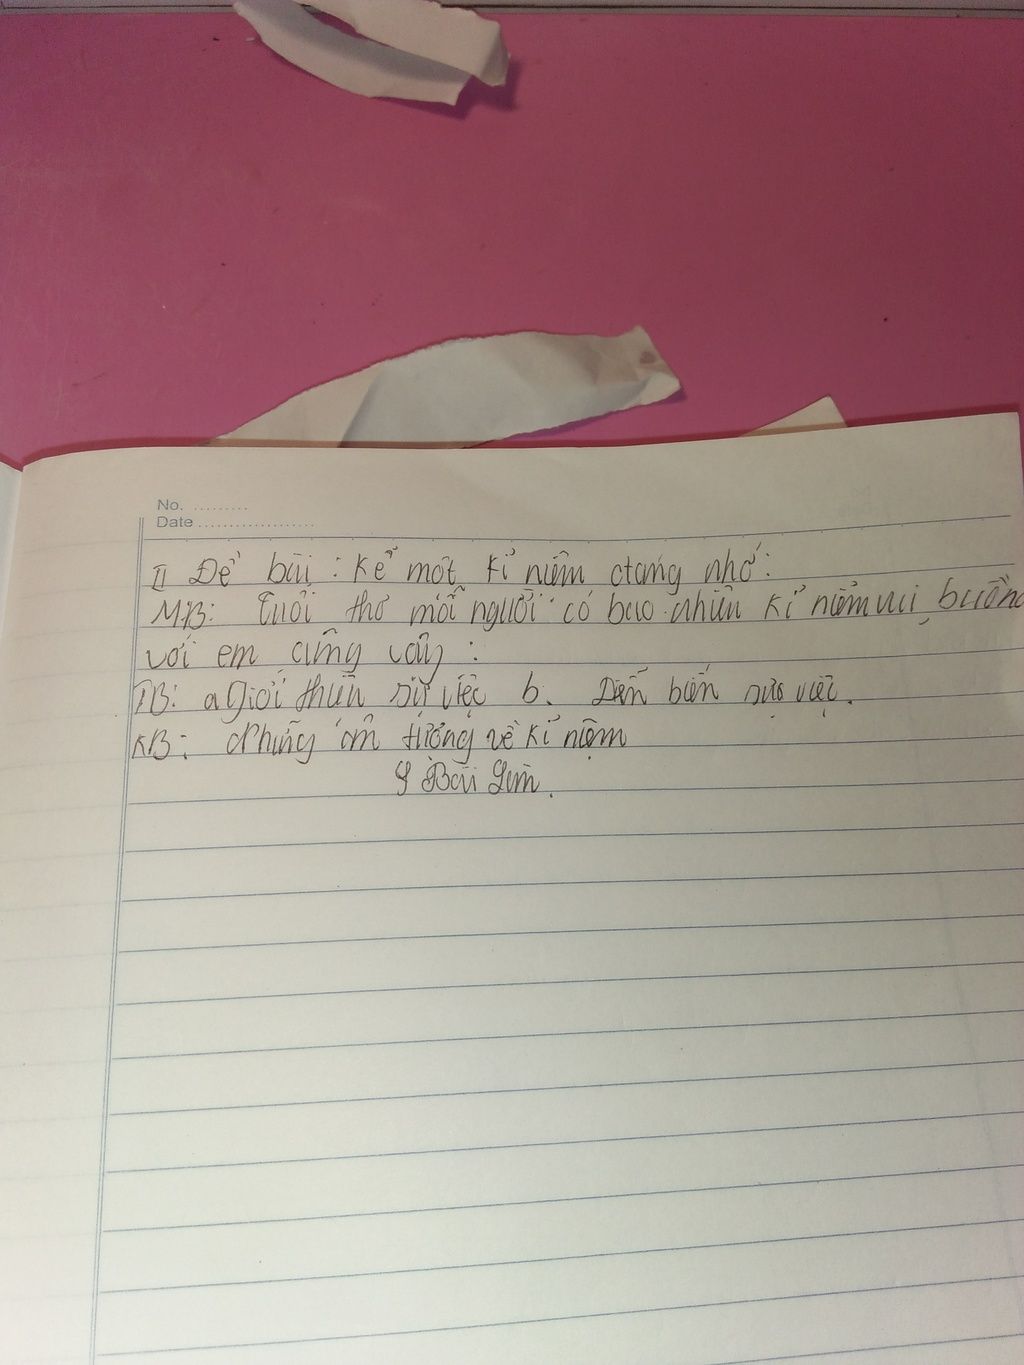 No. .........
Date ....................
II Đề bài : Kể một kỉ niệm đáng nhớ :
MB: Tuổi thơ mỗi người có bao nhiêu kỉ niệm vui, buồn
với em cũng vậy :
TB: a Giới thiệu sự việc b. Diễn biến sự việc.
KB: Những ấn tượng về kỉ niệm
Bài Làm.